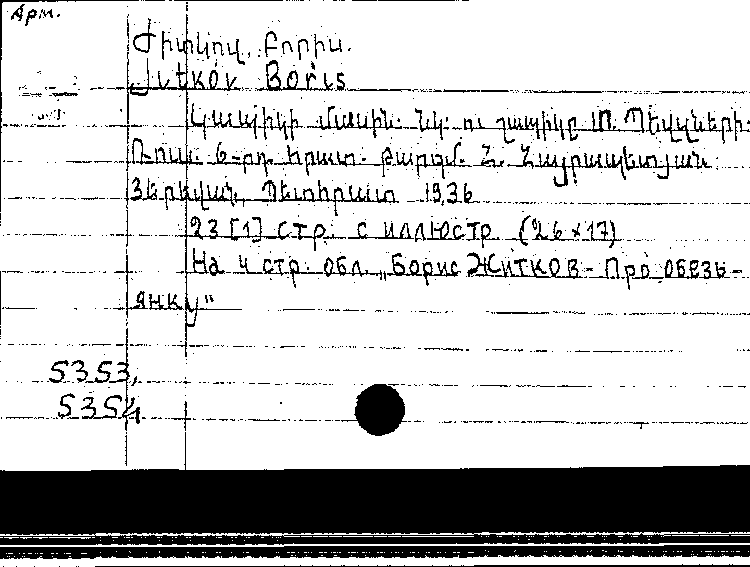 Арм.
Ժիտկով, Բորիս.
Jitkov Boris
Կապիկի մասին. նկ. ու շապիկը Մ. Պեվզների.
Ռուս. 6-րդ հրատ. թարգմ. Հ. Հայրապետյան
Յերևան, Պետհրատ 1936
23 [1] стр. с иллюстр. (26×17)
На 4 стр. обл. „Борис Житков - Про обезь-
янку"
5353,
5354